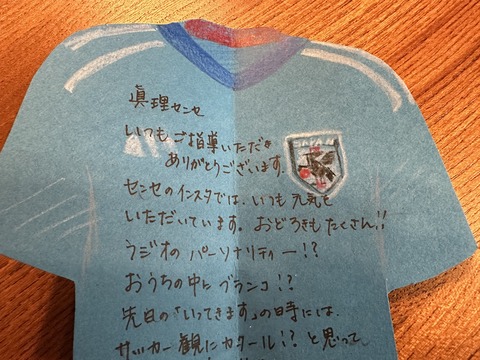 眞理センセ
いつもご指導いただき
ありがとうございます。
センセのインスタでは、いつも元気を
いただいています。おどろきもたくさん!!
ラジオのパーソナリティー!?
おうちの中にブランコ!?
先日の「いってきます」の時には、
サッカー観にカタール!?と思って